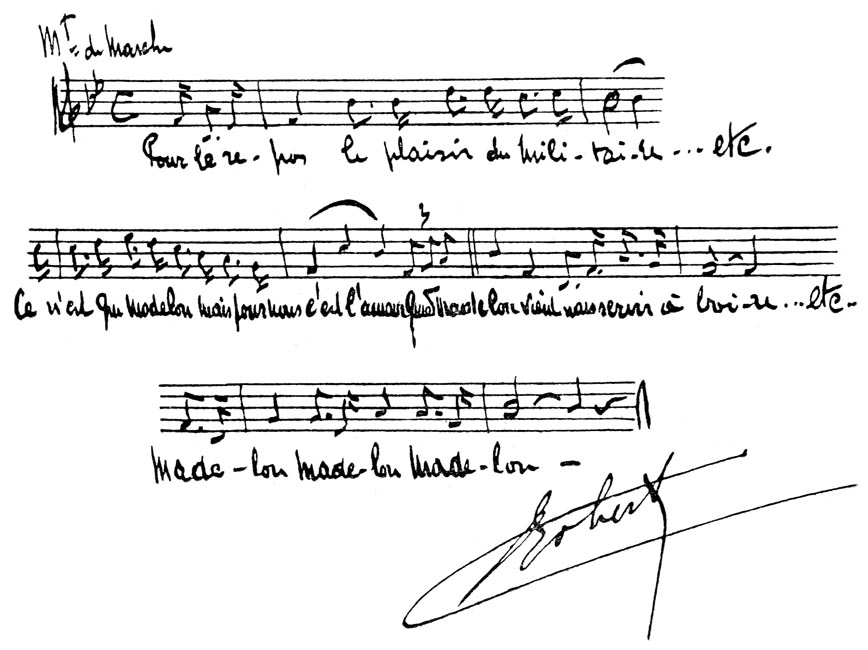 Mt de Marche
Pour le re-pos le plaisir du mili-tai-re...etc.
3
Ce n'est que Madelon mais pour nous c'est l'amour Quand Madelon vient nous servir à boi-re...etc.
Made-lon Made-lon Made-lon -
Robert